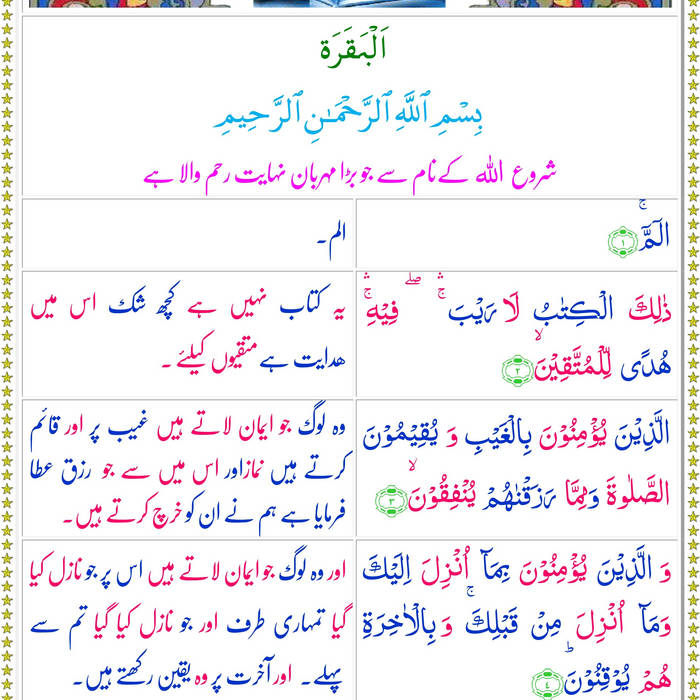 اَلْبَقَرَة
بِسْمِ ٱللَّهِ ٱلرَّحْمَـٰنِ ٱلرَّحِيمِ
شروع اللہ کے نام سے جو بڑا مہربان نہایت رحم والا ہے
الٓمّٓ ۚ ﴿۱﴾
الم۔
ذٰلِكَ الْكِتٰبُ لَا رَيْبَ ۛۚ ۖ فِيْهِ ۛۚ
هُدًى لِّلْمُتَّقِيْنَ ۙ ﴿۲﴾
یہ کتاب نہیں ہے کچھ شک اس میں
ھدایت ہے متقیوں کیلئے ۔
الَّذِيْنَ يُؤْمِنُوْنَ بِالْغَيْبِ وَ يُقِيْمُوْنَ
الصَّلٰوةَ وَمِمَّا رَزَقْنٰهُمْ يُنْفِقُوْنَ ۙ ﴿۳﴾
وہ لوگ جو ایمان لاتے ہیں غیب پر اور قائم
کرتے ہیں نماز اور اس میں سے جو رزق عطا
فرمایا ہے ہم نے ان کو خرچ کرتے ہیں۔
وَ الَّذِيْنَ يُؤْمِنُوْنَ بِمَآ اُنْزِلَ اِلَيْكَ
وَمَآ اُنْزِلَ مِنْ قَبْلِكَ ۚ وَ بِالْاٰخِرَةِ
هُمْ يُوْقِنُوْنَ ؕ ﴿۴﴾
اور وہ لوگ جو ایمان لاتے ہیں اس پر جو نازل کیا
گیا تمہاری طرف اور جو نازل کیا گیا تم سے
پہلے۔ اور آخرت پر وہ یقین رکھتے ہیں۔